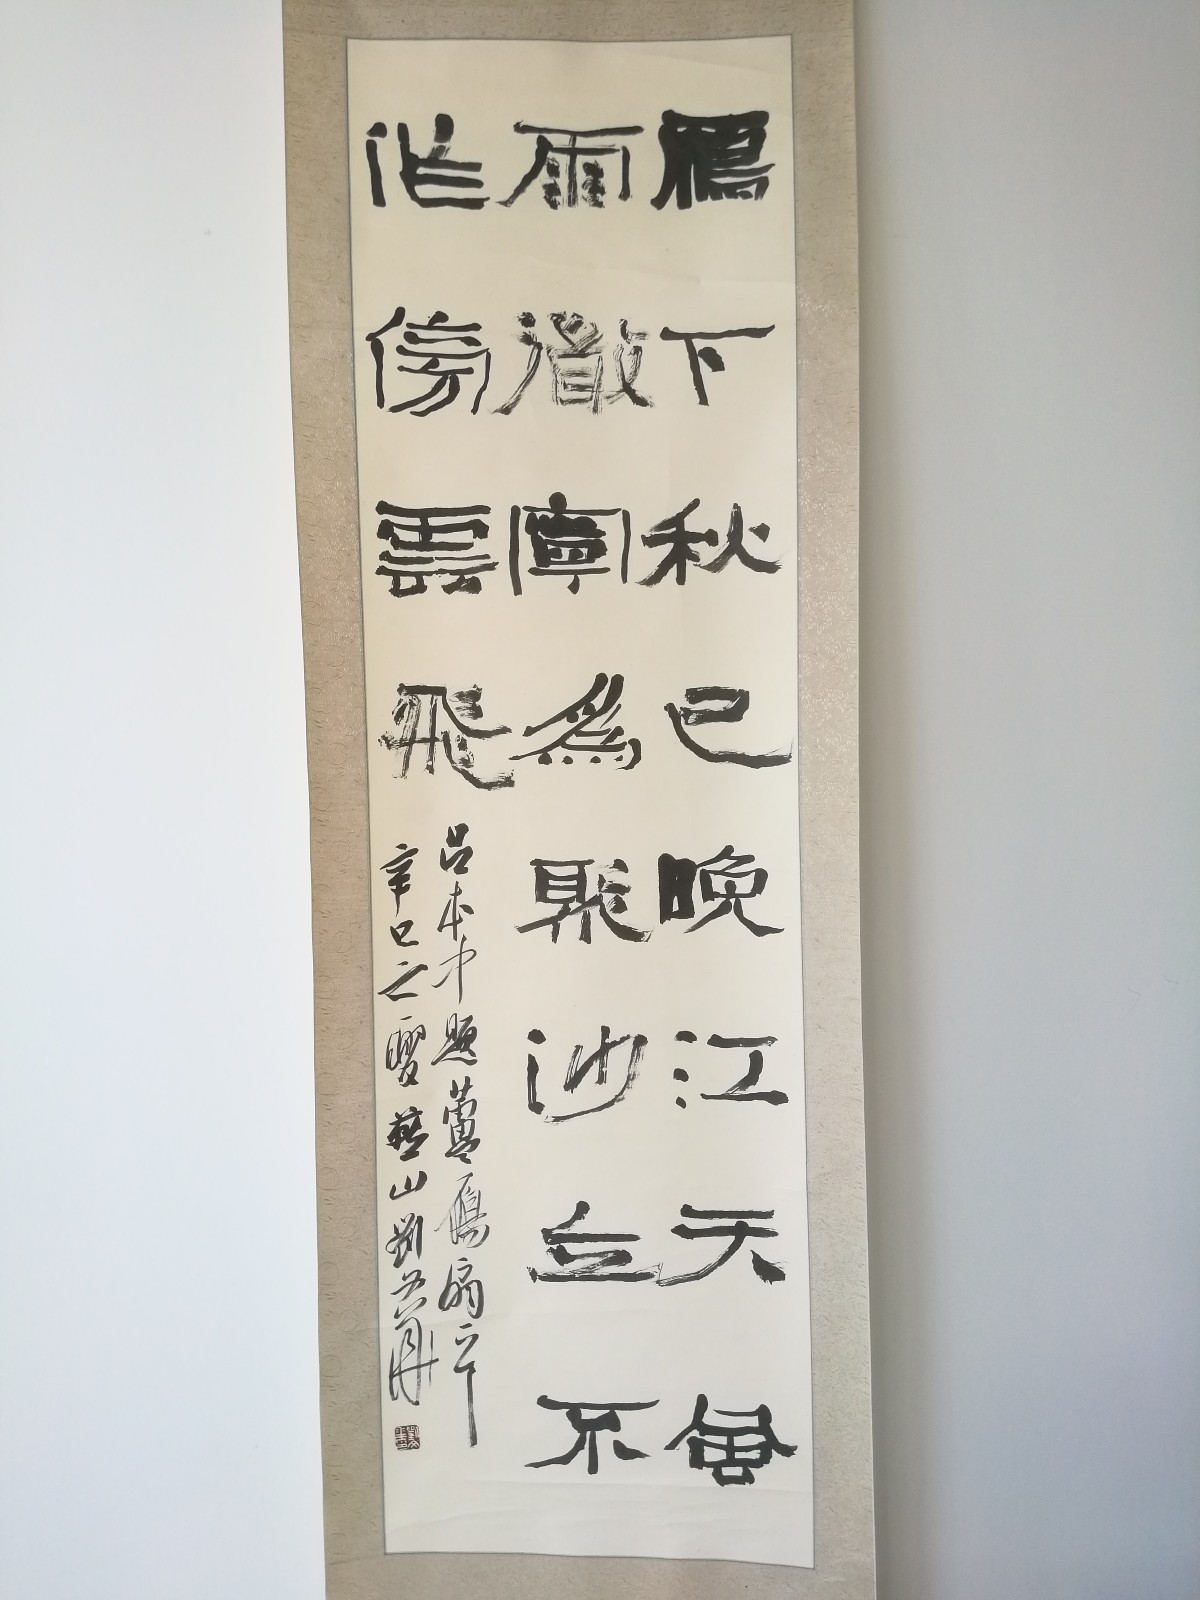 雁下秋已晚江天風
雨微寧為聚沙立不
作傍雲飛
呂本中題蘆雁扇一平
辛巳之夏燕山劉